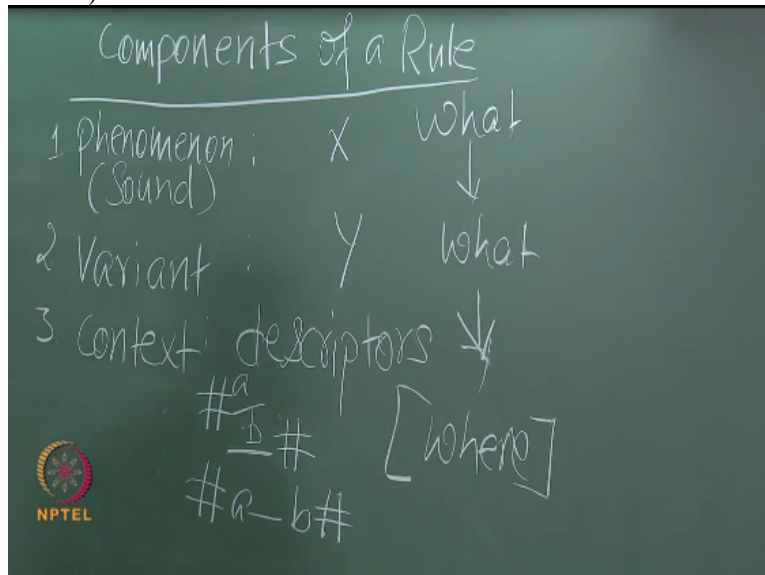 Components of a Rule
1 Phenomenon : X What
(Sound)
↓
2 Variant : Y What
↓
3. Context : descriptors
#a_
_b#
[Where]
#a_b#
NPTEL